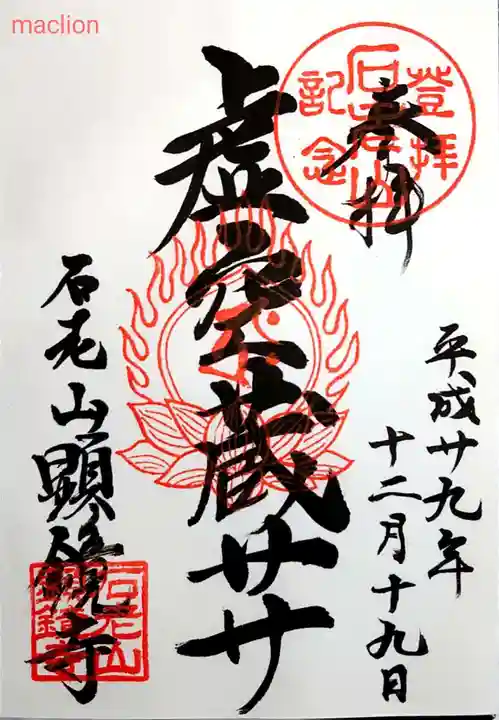 maclion
登拝
石老山
記念
奉拝
平成廿九年
十二月十九日
虚空蔵サ廾
石老山顕鏡寺
石老山
顕鏡寺